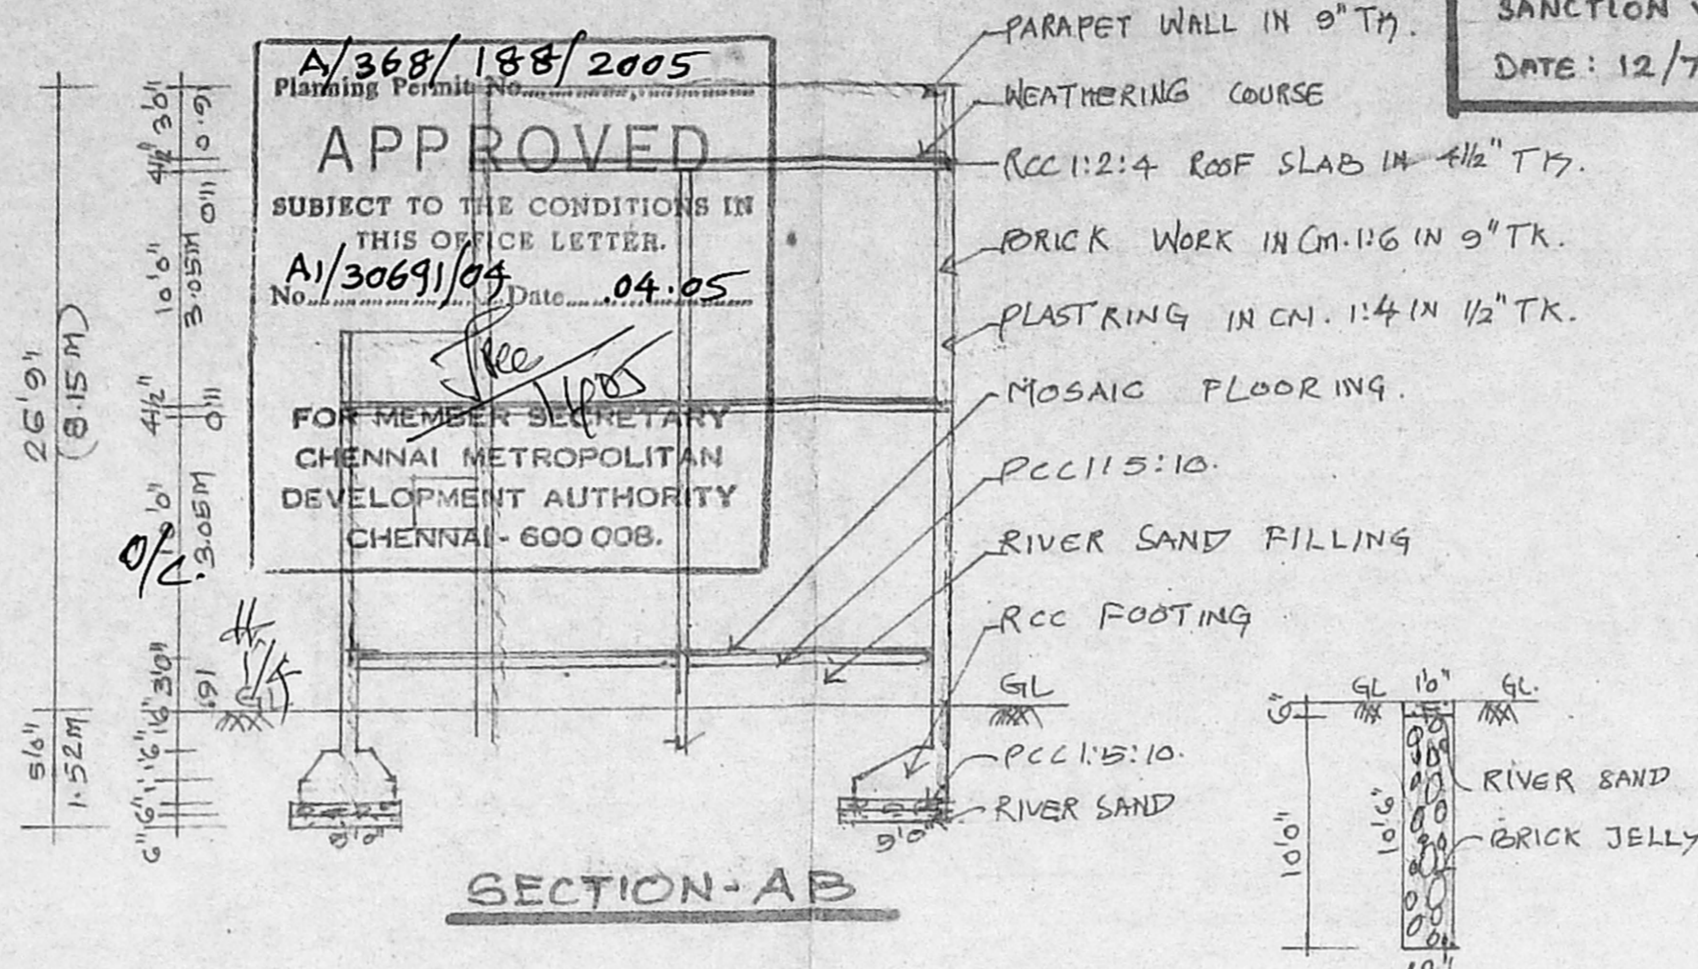 A/368/188/2005
Planning Permit No
APPROVED
SUBJECT TO THE CONDITIONS IN
THIS OFFICE LETTER.
No A1/30691/04 Date .04.05
FOR MEMBER SECRETARY
CHENNAI METROPOLITAN
DEVELOPMENT AUTHORITY
CHENNAI - 600 008.
PARAPET WALL IN 9" TK.
WEATHERING COURSE
RCC 1:2:4 ROOF SLAB IN 4½" TK.
BRICK WORK IN CM.1:6 IN 9" TK.
PLASTRING IN CM. 1:4 IN 1/2" TK.
MOSAIC FLOORING.
PCC 1:5:10.
RIVER SAND FILLING
RCC FOOTING
GL
PCC 1:5:10.
RIVER SAND
SANCTION
DATE: 12/7
26'9"
(8.15 M)
5'0"
1.52M
3'0"
0.91
4½"
0.11
10'0"
3.05M
4½"
0.11
3.05M
O/C.
3'0"
.91
1'6"
1'6"
6"
GL
SECTION-AB
GL
1'0"
GL.
6"
10'0"
10'6"
RIVER SAND
BRICK JELLY